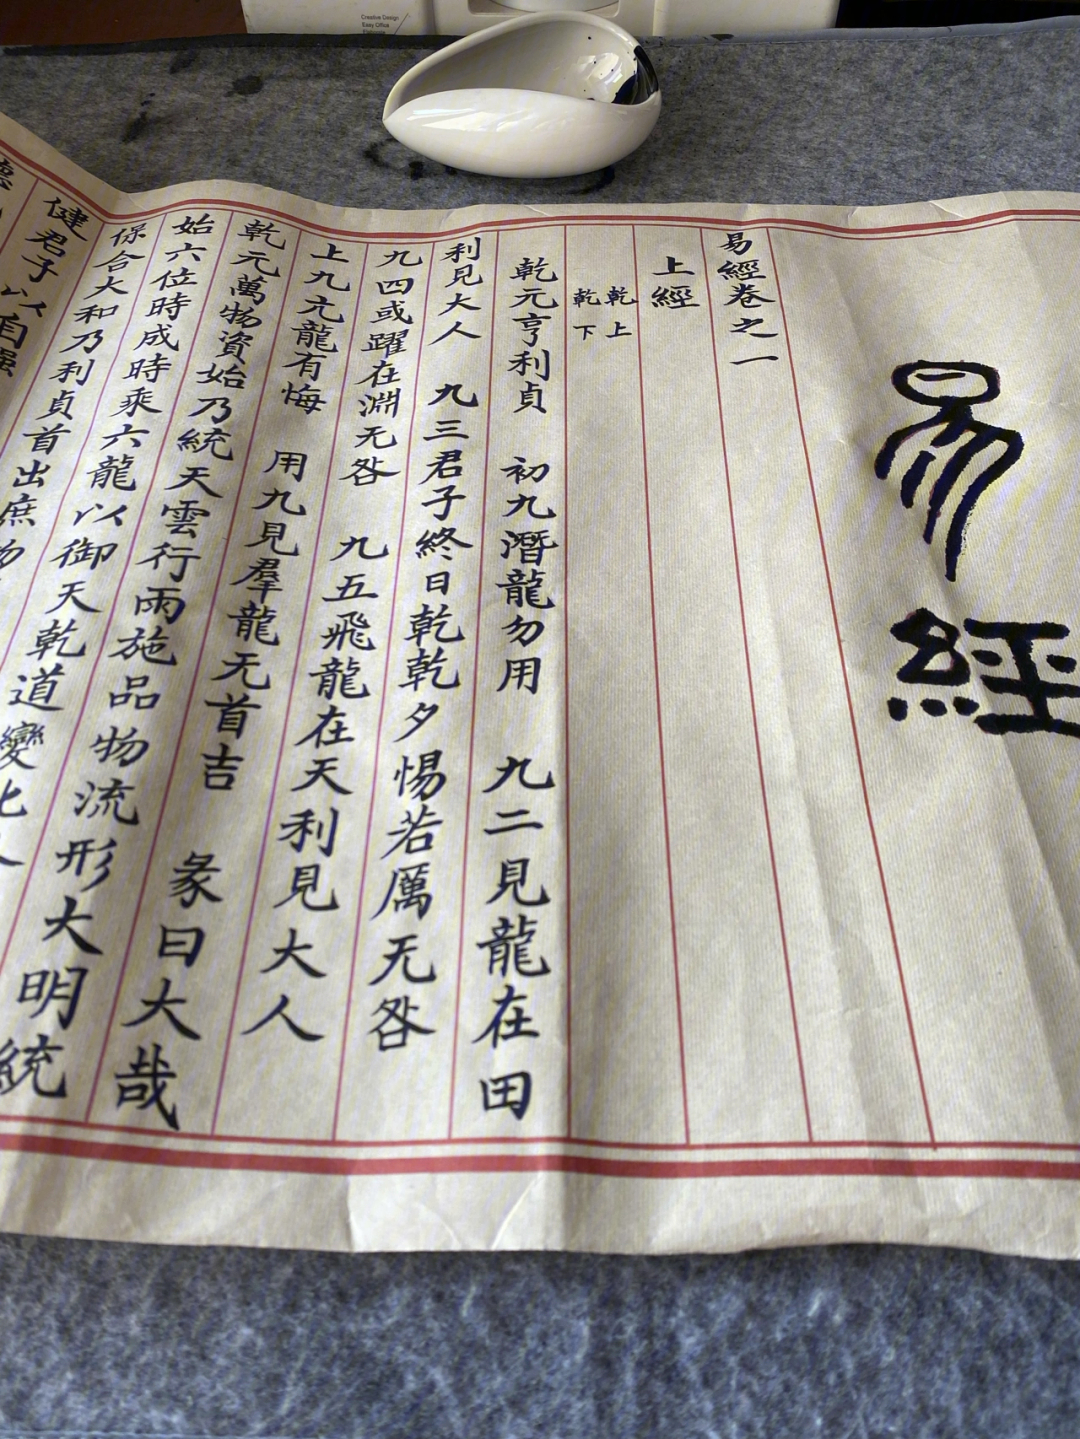 易經
易經卷之一
上經
乾上
乾下
乾元亨利貞 初九潛龍勿用 九二見龍在田
利見大人 九三君子終日乾乾夕惕若厲无咎
九四或躍在淵无咎 九五飛龍在天利見大人
上九亢龍有悔 用九見羣龍无首吉 彖曰大哉
乾元萬物資始乃統天雲行雨施品物流形大明統
始六位時成時乘六龍以御天乾道變化
保合大和乃利貞首出庶物
健君子以自強
Creative Design
Easy Office